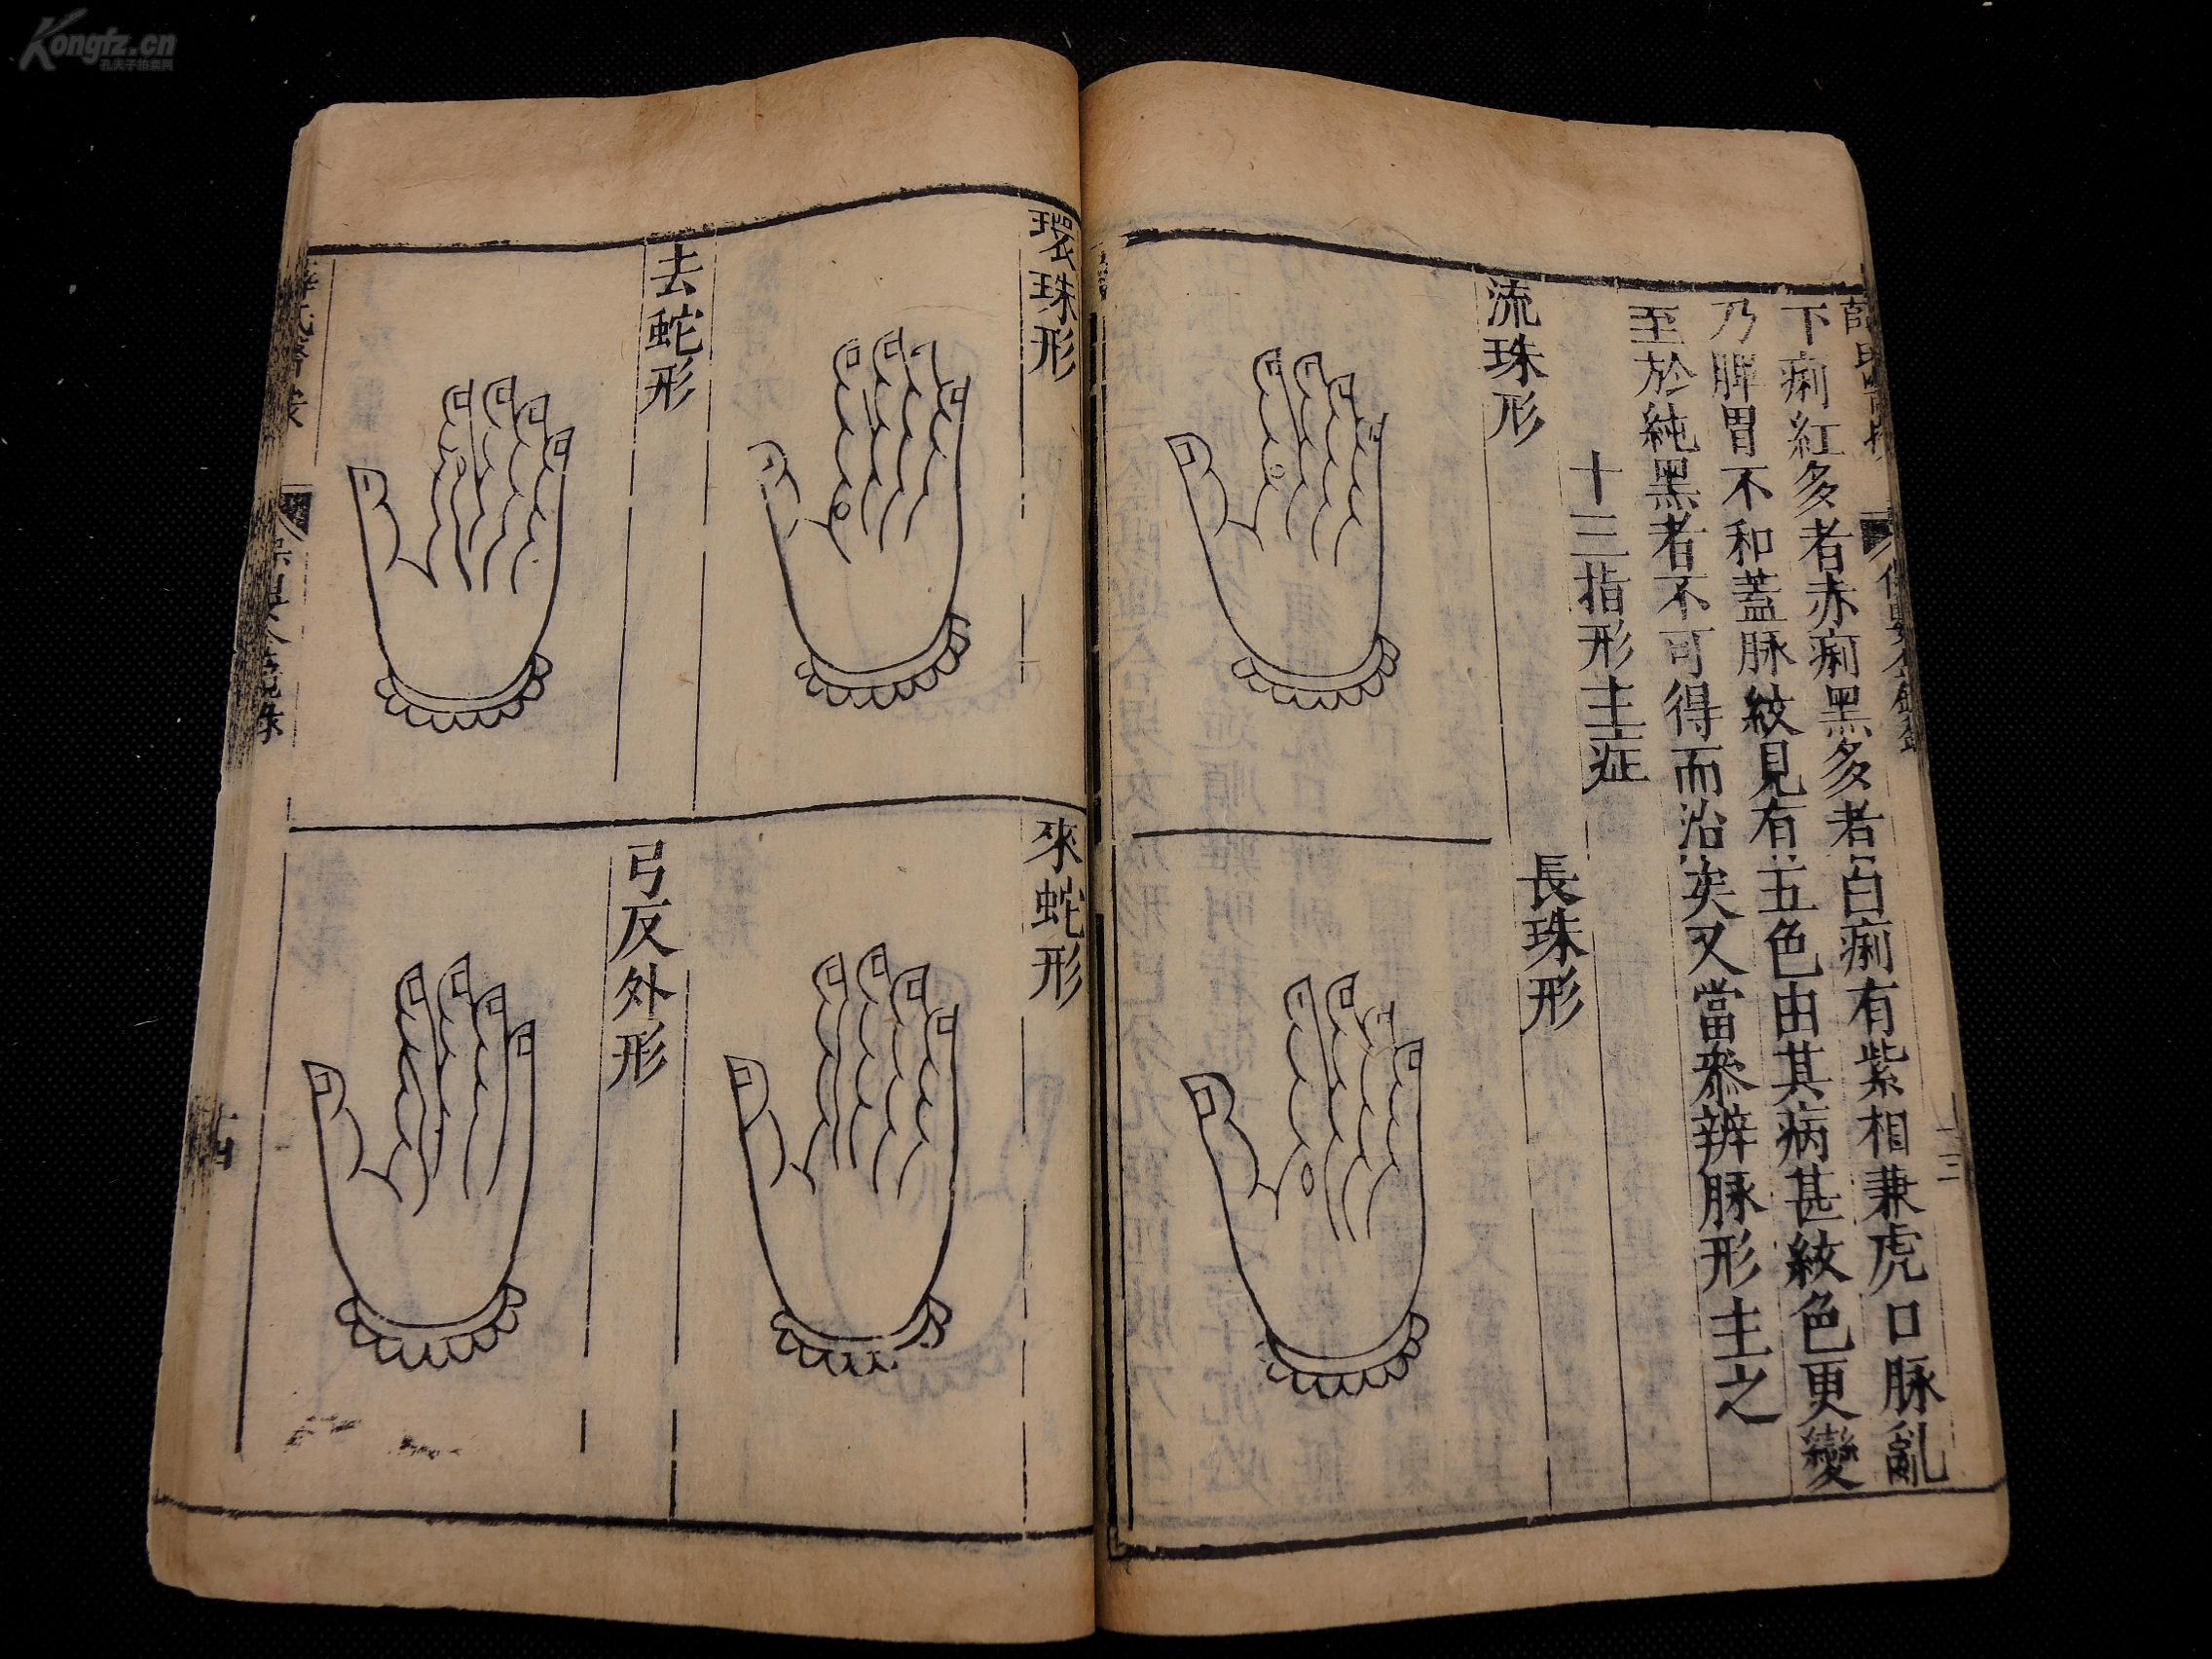 Kongfz.cn
孔夫子拍卖网
下痢紅多者赤痢黑多者白痢有紫相兼虎口脉亂
乃脾胃不和蓋脉紋見有五色由其病甚紋色更變
至於純黑者不可得而治矣又當叅辨脉形主之
十三指形主症
流珠形
長珠形
環珠形
來蛇形
去蛇形
弓反外形